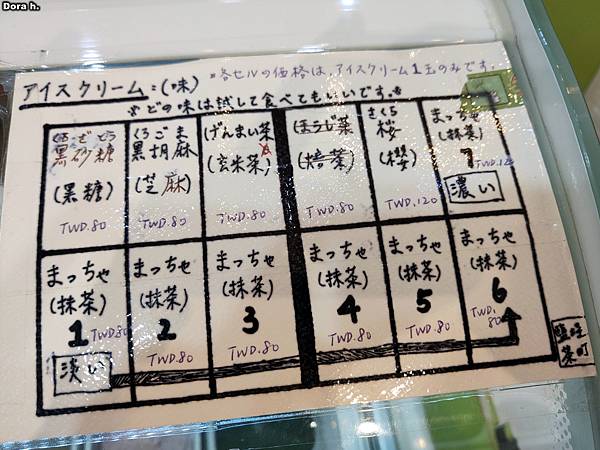 Dora h.
※各セルの価格は、アイスクリーム1玉のみです。
アイスクリーム:(味)
※どの味は試して食べてもいいです。※
くろざとう
黒砂糖
(黒糖)
TWD.80
くろごま
黒胡麻
(芝麻)
TWD.80
げんまい茶
(玄米茶)
TWD.80
ほうじ茶
(焙茶)
TWD.80
さくら
桜
(櫻)
TWD.120
まっちゃ
(抹茶)
7
TWD.120
濃い
まっちゃ
(抹茶)
1
TWD.80
淡い
まっちゃ
(抹茶)
2
TWD.80
まっちゃ
(抹茶)
3
TWD.80
まっちゃ
(抹茶)
4
TWD.80
まっちゃ
(抹茶)
5
TWD.80
まっちゃ
(抹茶)
6
TWD.
80